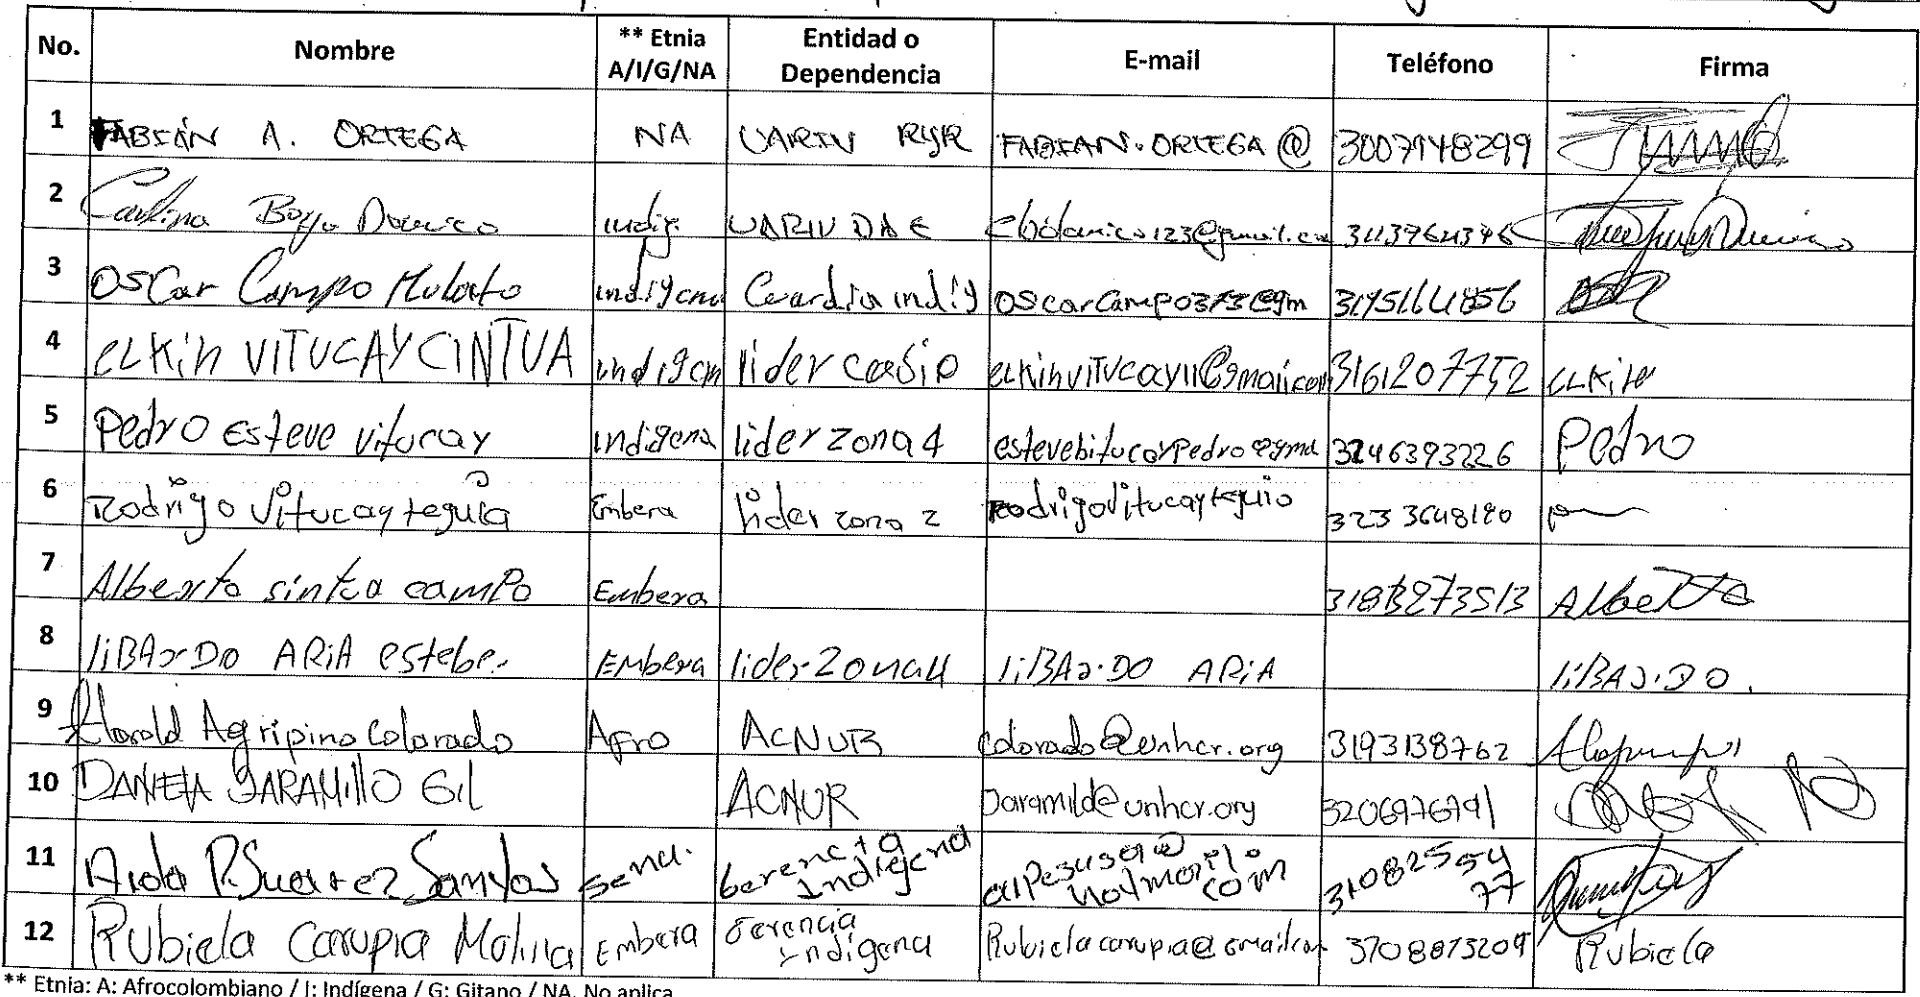 No. Nombre ** Etnia A/I/G/NA Entidad o Dependencia E-mail Teléfono Firma
1 FABIÁN A. ORTEGA NA UARIV RYR FABIAN.ORTEGA@ 3007148299
2 Carolina Domico indig. UARIV DAE 3113964346
3 OSCar Campo Mulato indigena Guardia indig OScarCampo0373@gm
4 eLKin VITUCAY CINTUA indigen lider casio eLKinVITucay11@gmail.com 3161207752 eLKin
5 Pedro esteve vitucay indigena lider zona 4 estevebitucaypedro@gma 3246393226 Pedro
6 Rodrigo Vitucay teguia Embera lider zona 2 RodrigoVitucayteguio 3233648180
7 Alberto sintua camPo Embera Alberto
8 liBArDO ARiA estebe. EMbera lider Zona 4 liBArDO ARiA liBArDO.
9 Harold Agripino Colorado Afro ACNUR colorado@unhcr.org 3193138762
10 DANIELA JARAMIllO GiL ACNUR Jaramild@unhcr.org 3206976791
11 Aida P. Suarez Santos Gerencia Indigena 3108255477
12 Rubiela Carupia Molina Embera Gerencia Indigena Rubielacarupia@Gmailcom 3708873209 Rubiela
** Etnia: A: Afrocolombiano / I: Indígena / G: Gitano / NA. No aplica